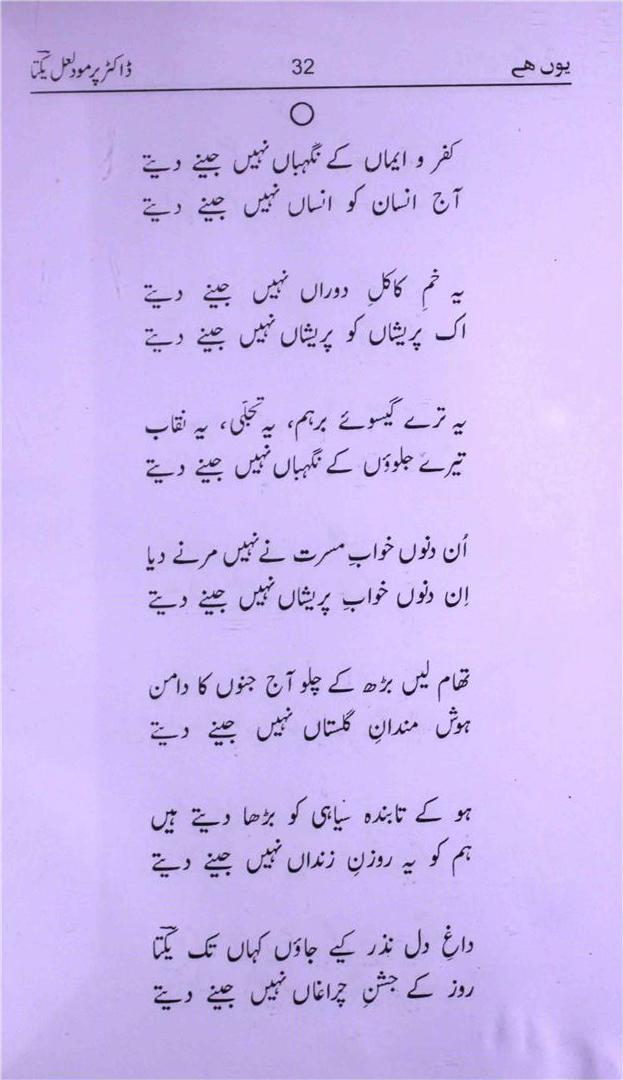 یوں ھے 32 ڈاکٹر پرمود لعل یکتا
کفر و ایماں کے نگہباں نہیں جینے دیتے
آج انسان کو انساں نہیں جینے دیتے
یہ خمِ کاکلِ دوراں نہیں جینے دیتے
اک پریشاں کو پریشاں نہیں جینے دیتے
یہ ترے گیسوئے برہم، یہ تجلّی، یہ نقاب
تیرے جلوؤں کے نگہباں نہیں جینے دیتے
اُن دنوں خوابِ مسرت نے نہیں مرنے دیا
اِن دنوں خوابِ پریشاں نہیں جینے دیتے
تھام لیں بڑھ کے چلو آج جنوں کا دامن
ہوش مندانِ گلستاں نہیں جینے دیتے
ہو کے تابندہ سیاہی کو بڑھا دیتے ہیں
ہم کو یہ روزنِ زنداں نہیں جینے دیتے
داغِ دل نذر کیے جاؤں کہاں تک یکتا
روز کے جشنِ چراغاں نہیں جینے دیتے